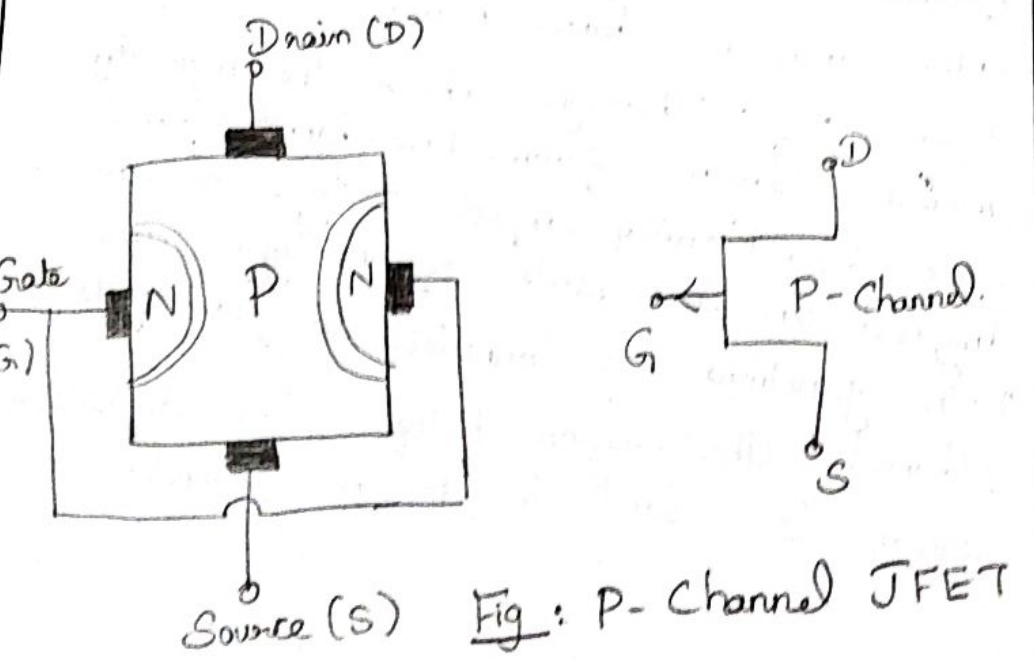 Drain (D)
Gate
G)
N
P
N
Source (S)
D
G
P-Channel.
S
Fig: P- Channel JFET